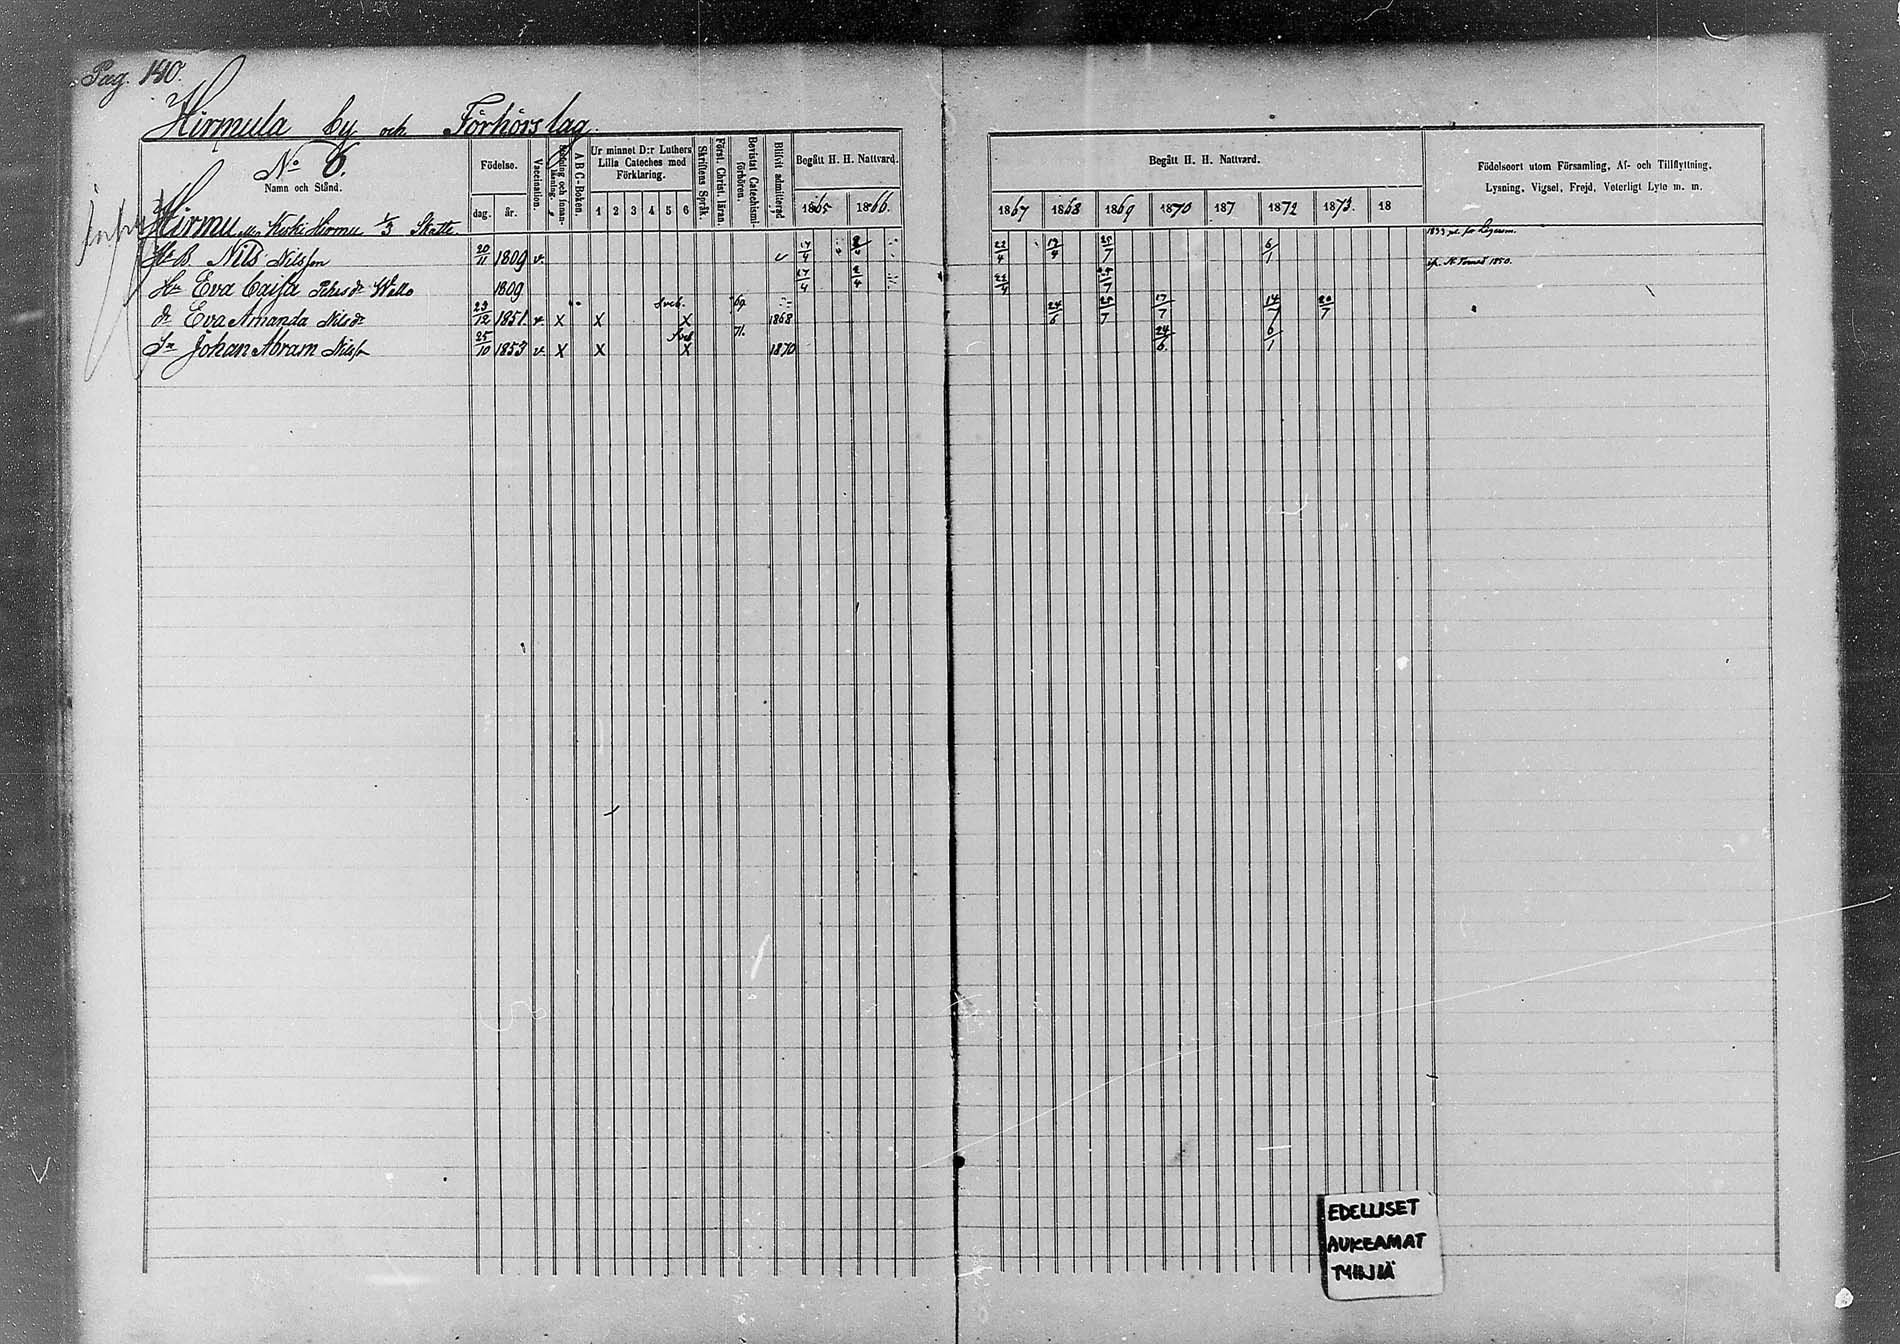 Pag. 140.
Hirmula by och Förhörslag.
No 6.
Namn och Stånd.
Födelse.
dag. år.
Vaccination.
ABC-Boken.
Ur minnet D:r Luthers
Lilla Cateches med
Förklaring.
1 2 3 4 5 6
Skriftens Språk.
Först. Christ. läran.
Bevistat Catechismi-
förhören.
Blifvit admitterad
Begått H. H. Nattvard.
1865 1866.
Begått H. H. Nattvard.
1867 1868 1869 1870 187 1872 1873. 18
Födelseort utom Församling, Af- och Tillflyttning,
Lysning, Vigsel, Frejd, Veterligt Lyte m. m.
Hirmu Keski Hirmu 1/3 Skatte
Nils Nilsson 20/11 1809 v. 17/4 2/4 22/4 19/4 25/7 6/1
Hu Eva Cajsa 1809 17/4 2/4 22/4 25/7
dr Eva Amanda Nilsdr 29/12 1851. v. X X X 69 1868 24/6 25/7 17/7 14/7 20/7
Sn Johan Abram Nilss 25/10 1853 v. X X X 71. 1870 24/6. 6/1
EDELLISET
AUKEAMAT
TYHJIÄ